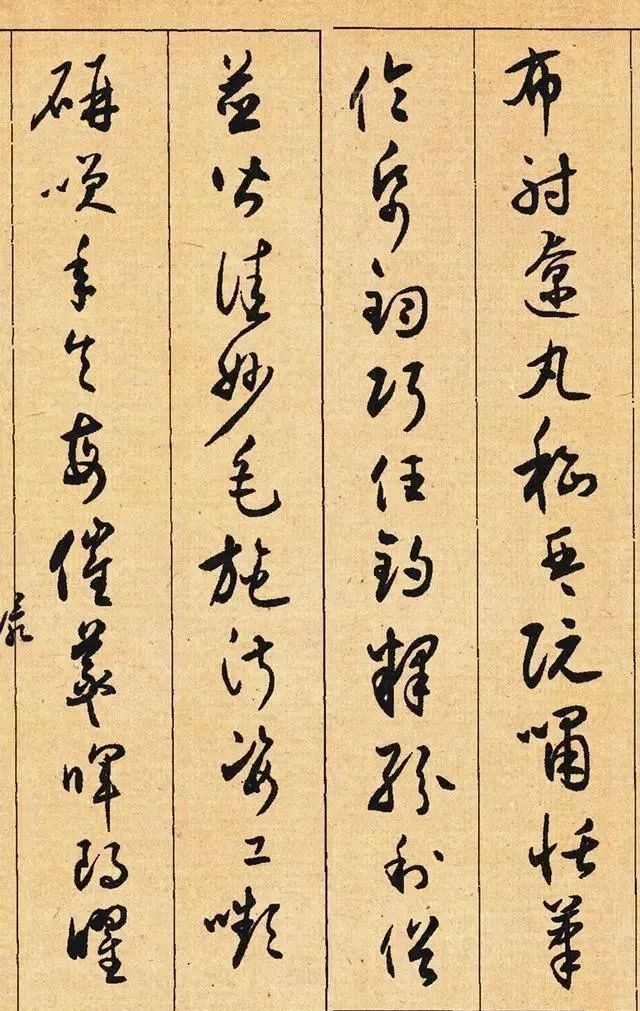 布射遼丸嵇琴阮嘯恬筆
倫帋鈞巧任釣釋紛利俗
並皆佳妙毛施淑姿工嚬
研咲年矢每催羲暉朗曜